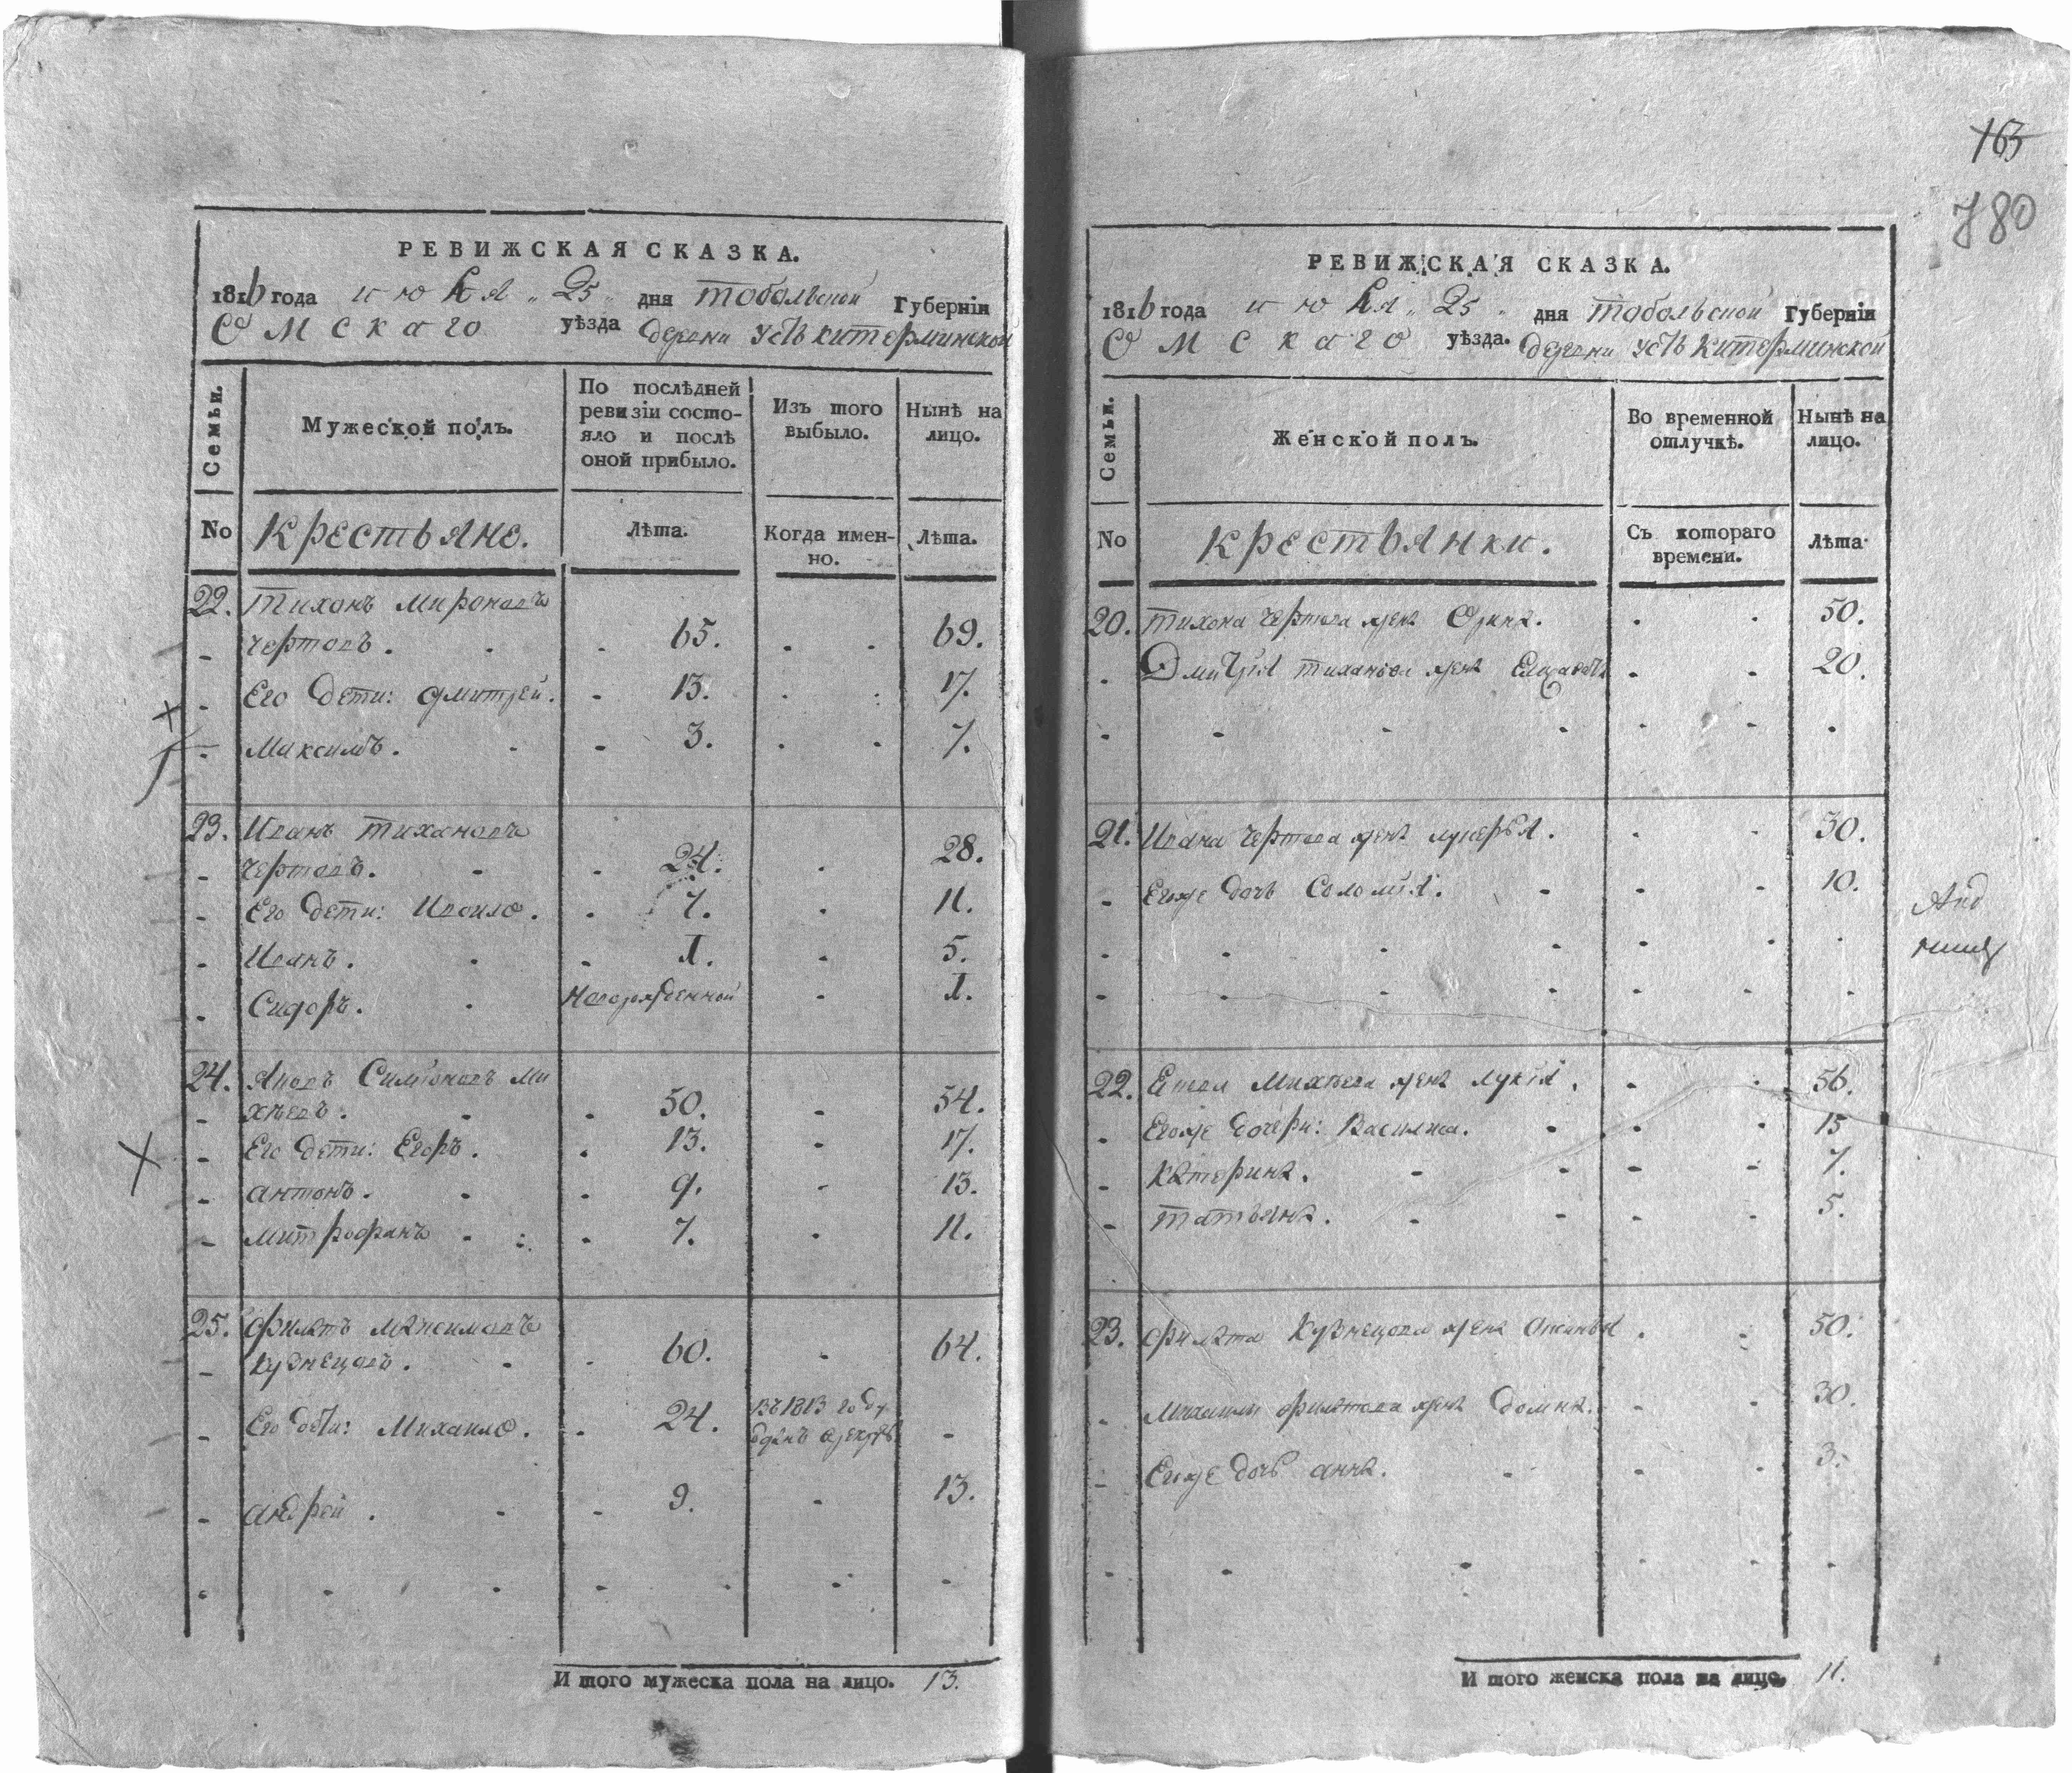 РЕВИЖСКАЯ СКАЗКА.
1816 года июля „ 25 „ дня тобольской Губерніи
Омскаго уѣзда деревни усть китерминской
Семьи.
Мужеской полъ.
По послѣдней ревизіи состо-яло и послѣ оной прибыло.
Изъ того выбыло.
Нынѣ на лицо.
No
Крестьяне.
Лѣта.
Когда имен-но.
Лѣта.
22. Тихонъ Мироновъ
чертовъ. 65. 69.
Его дети: дмитрей. 13. 17.
Максимъ. 3. 7.
23. Иванъ тихановъ
чертовъ. 24. 28.
Его дети: 7. 11.
Иванъ. 1. 5.
Сидоръ. новорожденной 1.
24. Симіоновъ Ми
хѣевъ. 50. 54.
Его дети: Егоръ. 13. 17.
антонъ. 9. 13.
митрофанъ 7. 11.
25. филатъ максимовъ
кузнецовъ. 60. 64.
Его дети: Михаило. 24. въ 1813 году
отданъ врекруты
андрей. 9. 13.
И того мужеска пола на лицо. 13.
165
780
РЕВИЖСКАЯ СКАЗКА.
1816 года июля „ 25 „ дня тобольской Губерніи
Омскаго уѣзда. деревни усть китерминской
Семьи.
Женской полъ.
Во временной отлучкѣ.
Нынѣ на лицо.
No
Крестьянки.
Съ котораго времени.
Лѣта
20. тихона чертова жена 50.
Дмитрія тиханова жена Елизаветъ 20.
21. Ивана чертова жена лукерья. 30.
Егоже дочь Соломія. 10.
22. Михѣева жена лукія. 56.
Егоже дочери: Василиса. 15
катерина. 7.
татьяна. 5.
23. филата Кузнецова жена 50.
Михаилы филатова жена домна. 30.
Егоже дочь анна. 3.
И того женска пола на лицо. 11.